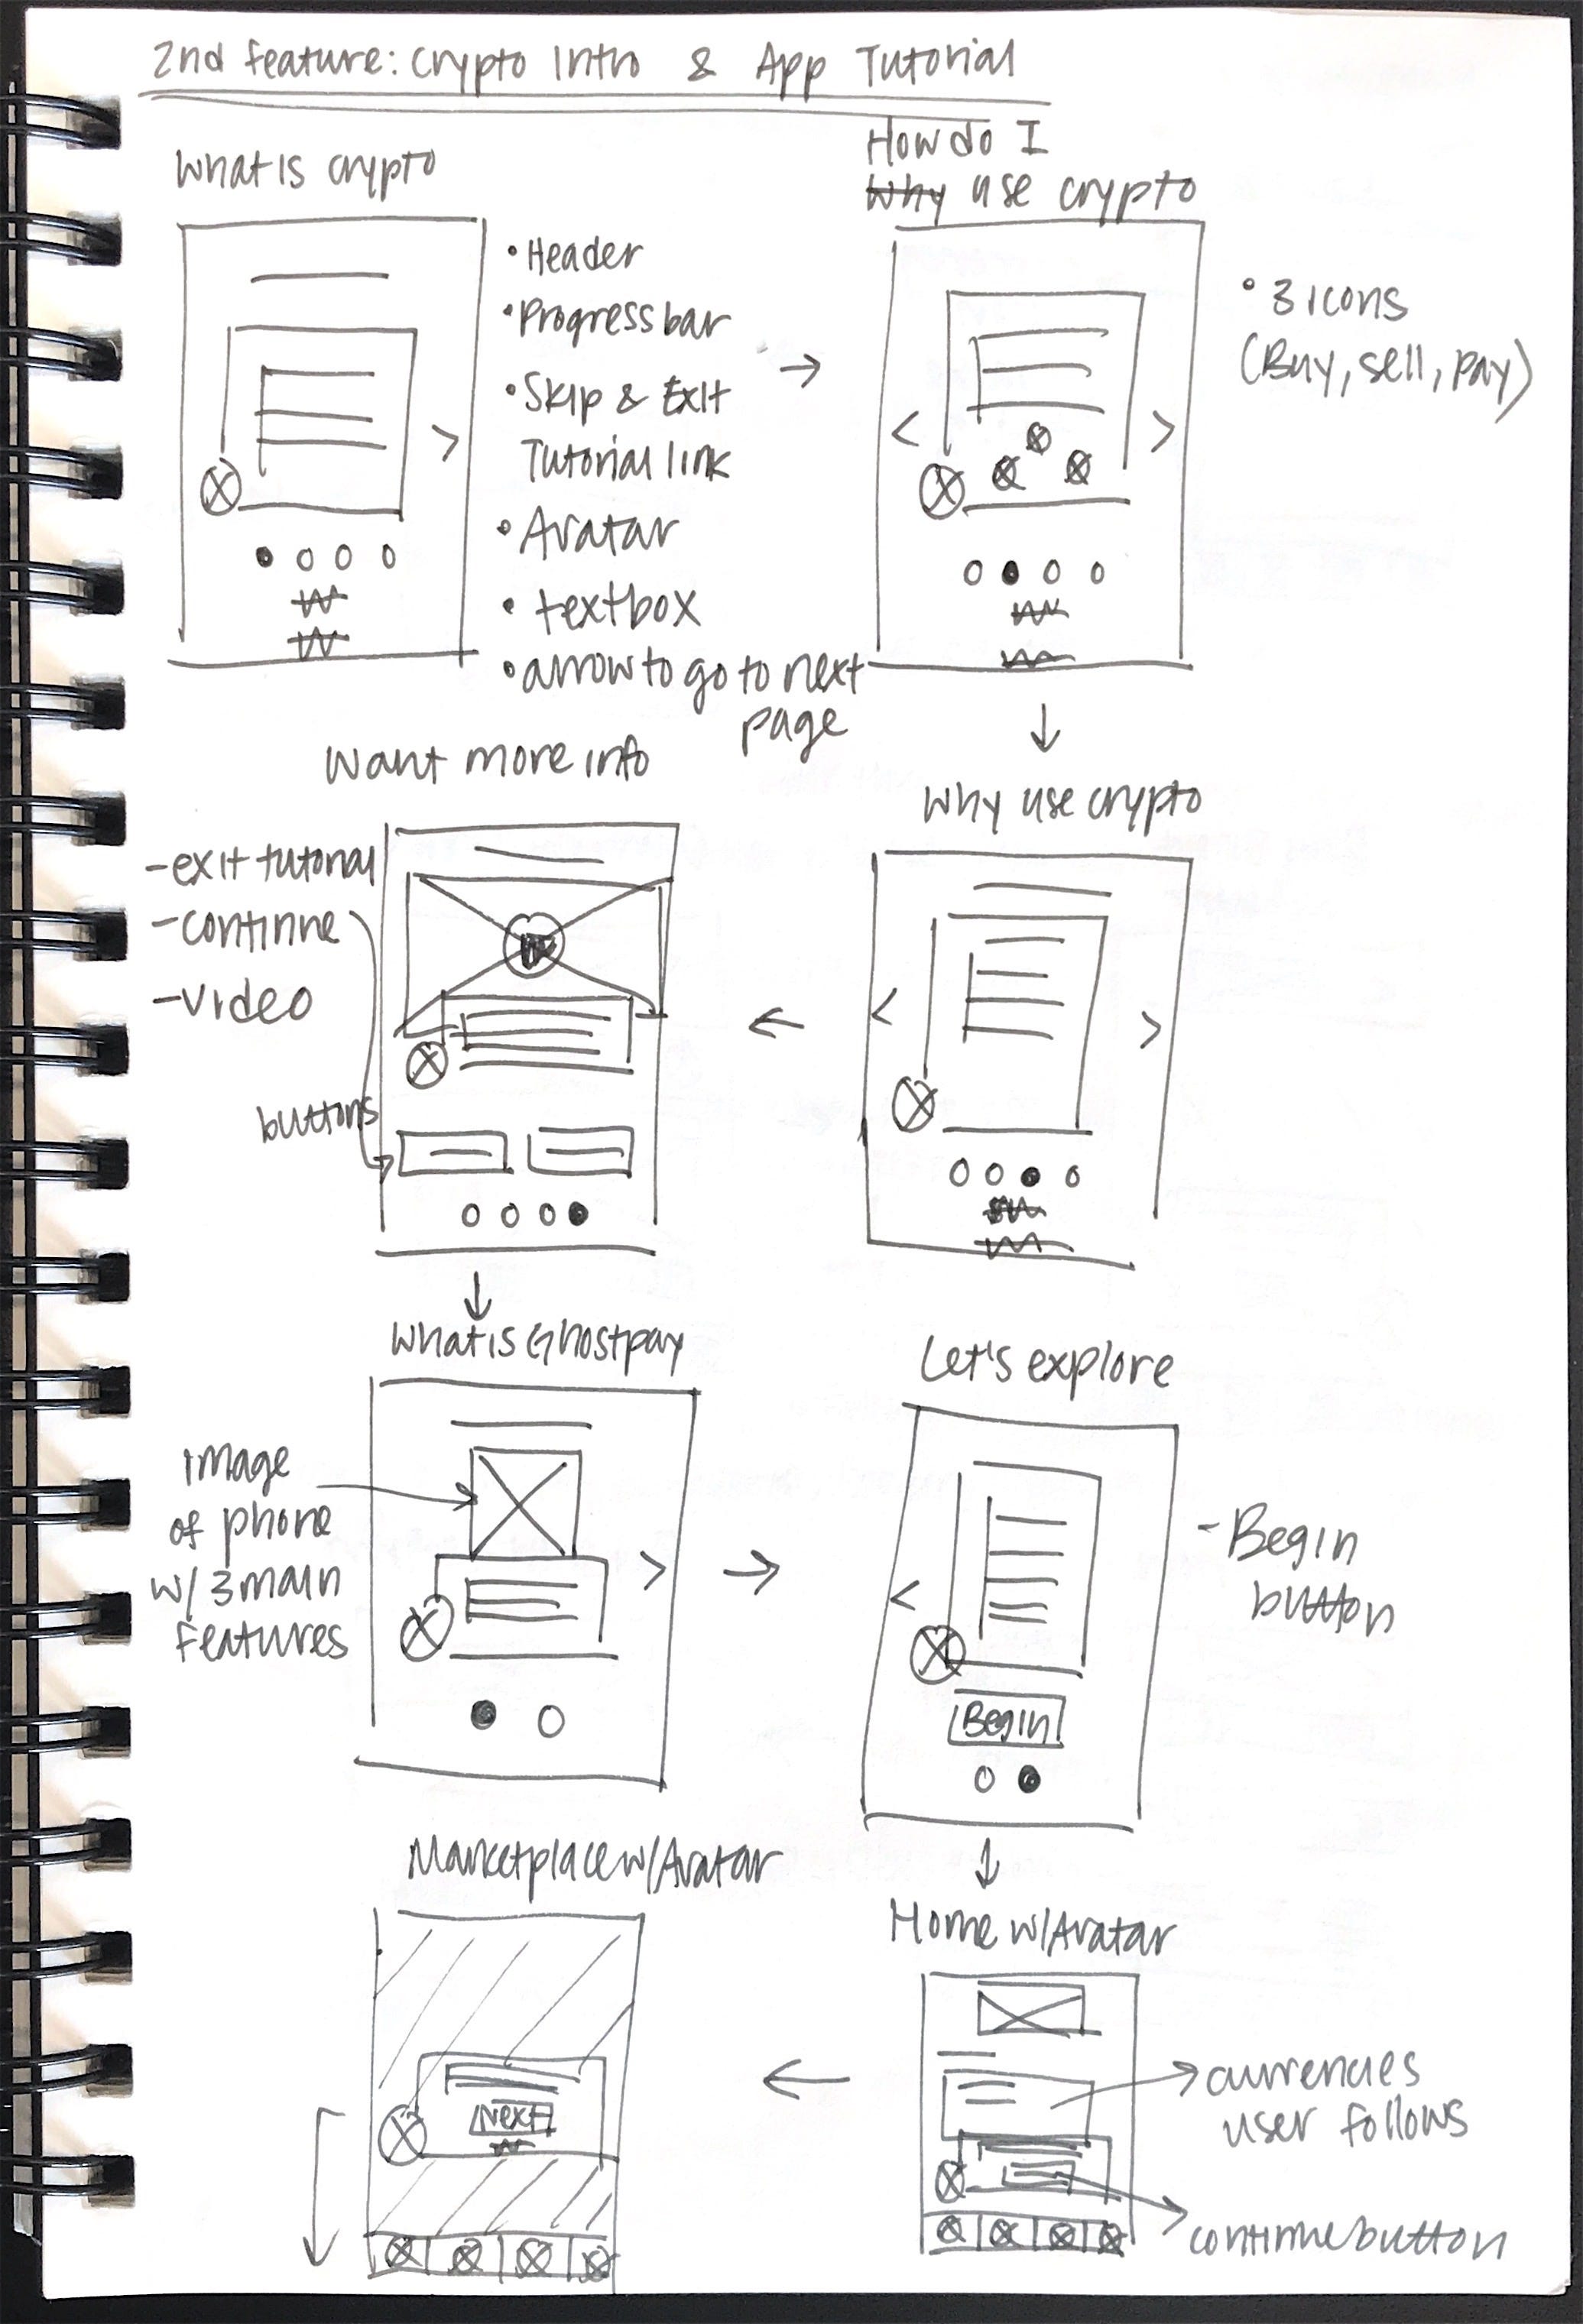 2nd Feature: Crypto Intro & App Tutorial
What is crypto
• Header
• Progress bar
• Skip & Exit
Tutorial link
• Avatar
• textbox
• arrow to go to next
page
How do I
Why use crypto
• 3 icons
(Buy, sell, pay)
Why use crypto
Want more info
- exit tutorial
- continue
- video
buttons
What is Ghostpay
image
of phone
w/ 3 main
features
Let's explore
- Begin
button
Begin
Home w/ Avatar
currencies
user follows
continue button
Marketplace w/ Avatar
Next